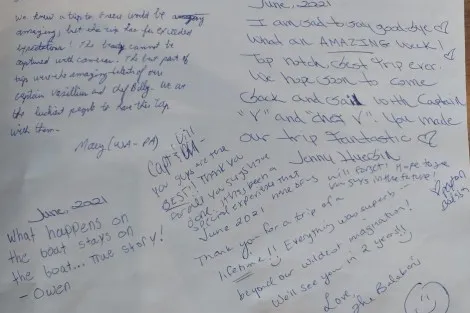 We knew a trip to Greece would be amazing
amazing, but this trip has far exceeded
expectations! The beauty cannot be
captured with cameras. The best part of
trip were the amazing talents of our
captain Vassillian and chef Billy. We are
the luckiest people to have this trip
with them.
Mary (USA - PA)
June, 2021
I am sad to say goodbye ♡
What an AMAZING Week!
Top notch best trip ever.
We hope soon to come
back and sail with Captain
"V" and chef "V". You made
our trip fantastic ♡
Jenny
June, 2021
What happens on
the boat stays on
the boat... True story!
- Owen
Capt &
You guys are the
BEST!! Thank you
for all you guys have
done. It has been a
special experience that
none of us will forget! Hope to see
you guys in the future!
June 2021
Thank you for a trip of a
lifetime!! Everything was superb &
beyond our wildest imagination!
We'll see you in 2 years!!
Love,
The